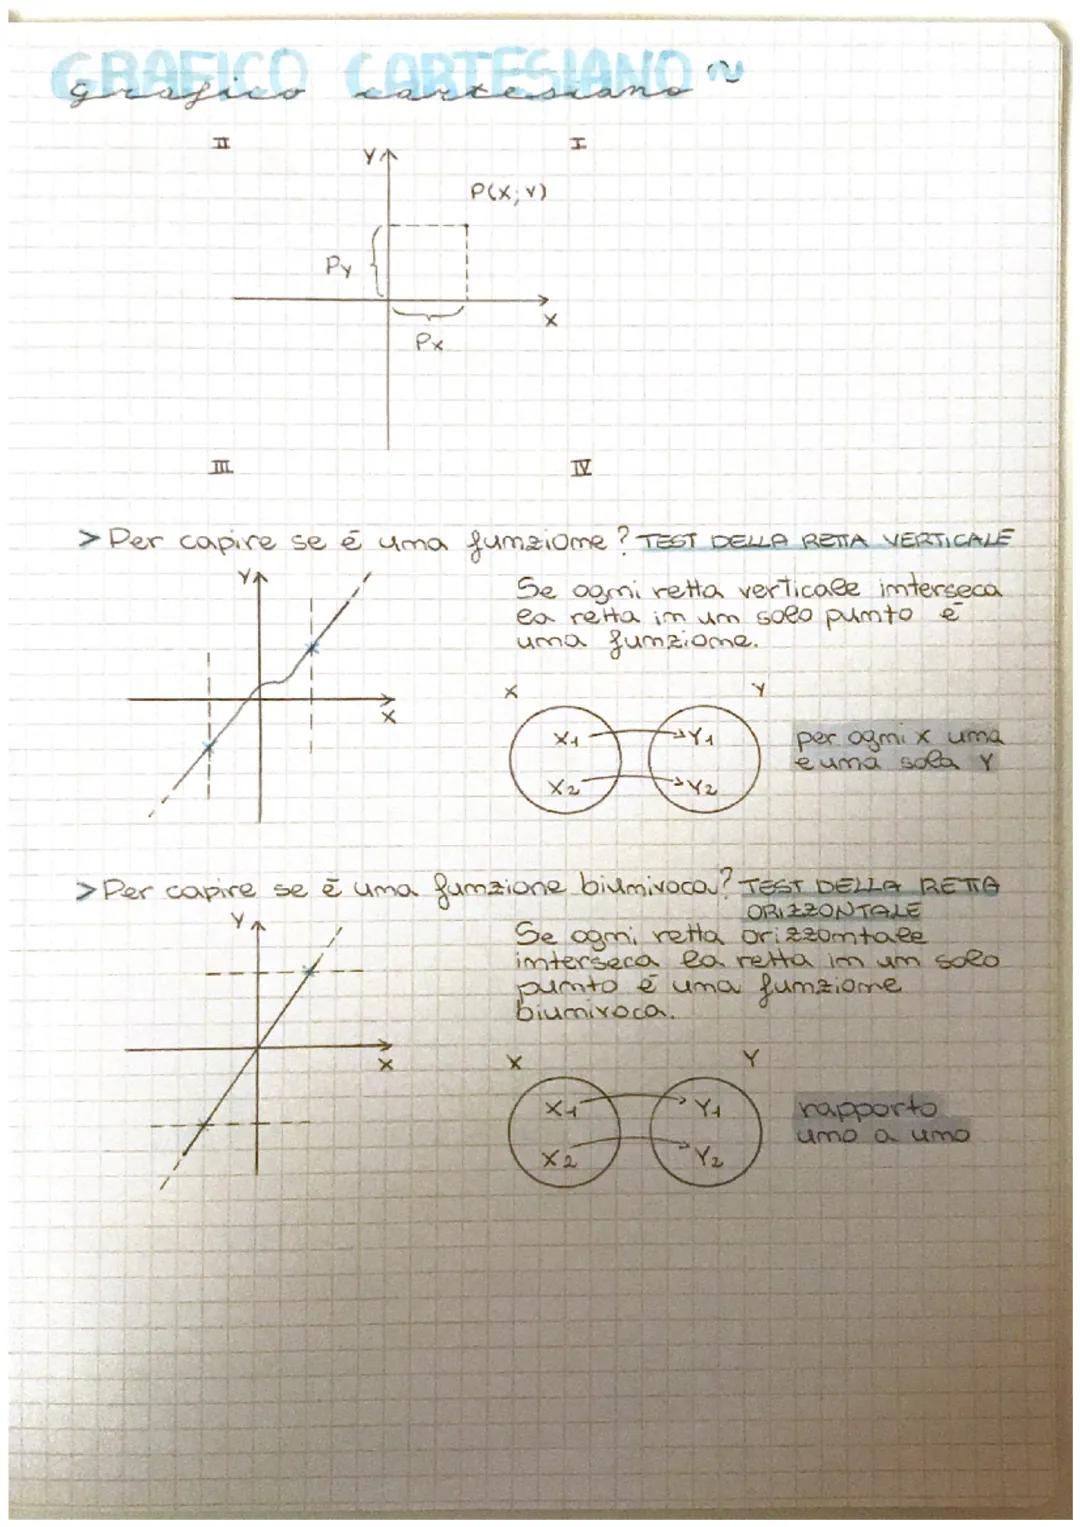 GRAFICO CARTESIANO ~
grafico cartesiano
II
I
Y
P(X; Y)
Py
X
Px
III
IV
> Per capire se é una funzione? TEST DELLA RETTA VERTICALE
Y
Se ogni retta verticale interseca
la retta in un solo punto é
una funzione.
X
X Y
X1 Y1
X2 Y2
per ogni x una
e una sola Y
> Per capire se é una funzione biunivoca? TEST DELLA RETTA
ORIZZONTALE
Y
Se ogni retta orizzontale
interseca la retta in un solo
punto é una funzione
biunivoca.
X
X Y
X1 Y1
X2 Y2
rapporto
uno a uno